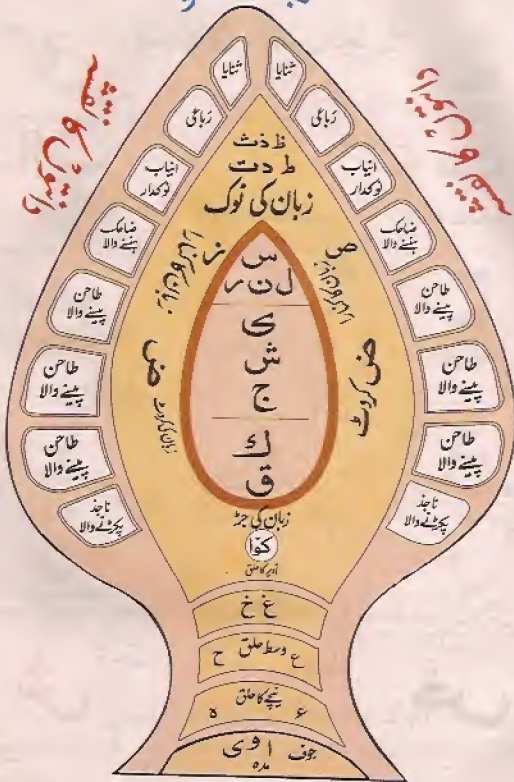 دانتوں کا نقشہ
دانتوں کا نقشہ
ثنایا
ثنایا
رباعی
رباعی
انیاب
نوکدار
انیاب
نوکدار
ضاحک
ہنسنے والا
ضاحک
ہنسنے والا
طاحن
پیسنے والا
طاحن
پیسنے والا
طاحن
پیسنے والا
طاحن
پیسنے والا
طاحن
پیسنے والا
طاحن
پیسنے والا
ناجذ
پکڑنے والا
ناجذ
پکڑنے والا
ظ ذ ث
ط د ت
زبان کی نوک
ص
ز
س
ل ن ر
ی
ش
ج
ك
ق
ض کروٹ
ض
زبان کی کروٹ
زبان کی جڑ
کوّا
اوپر کا حلق
غ خ
ع وسط حلق ح
ء نیچے کا حلق ہ
جوف ا و ی
مدہ